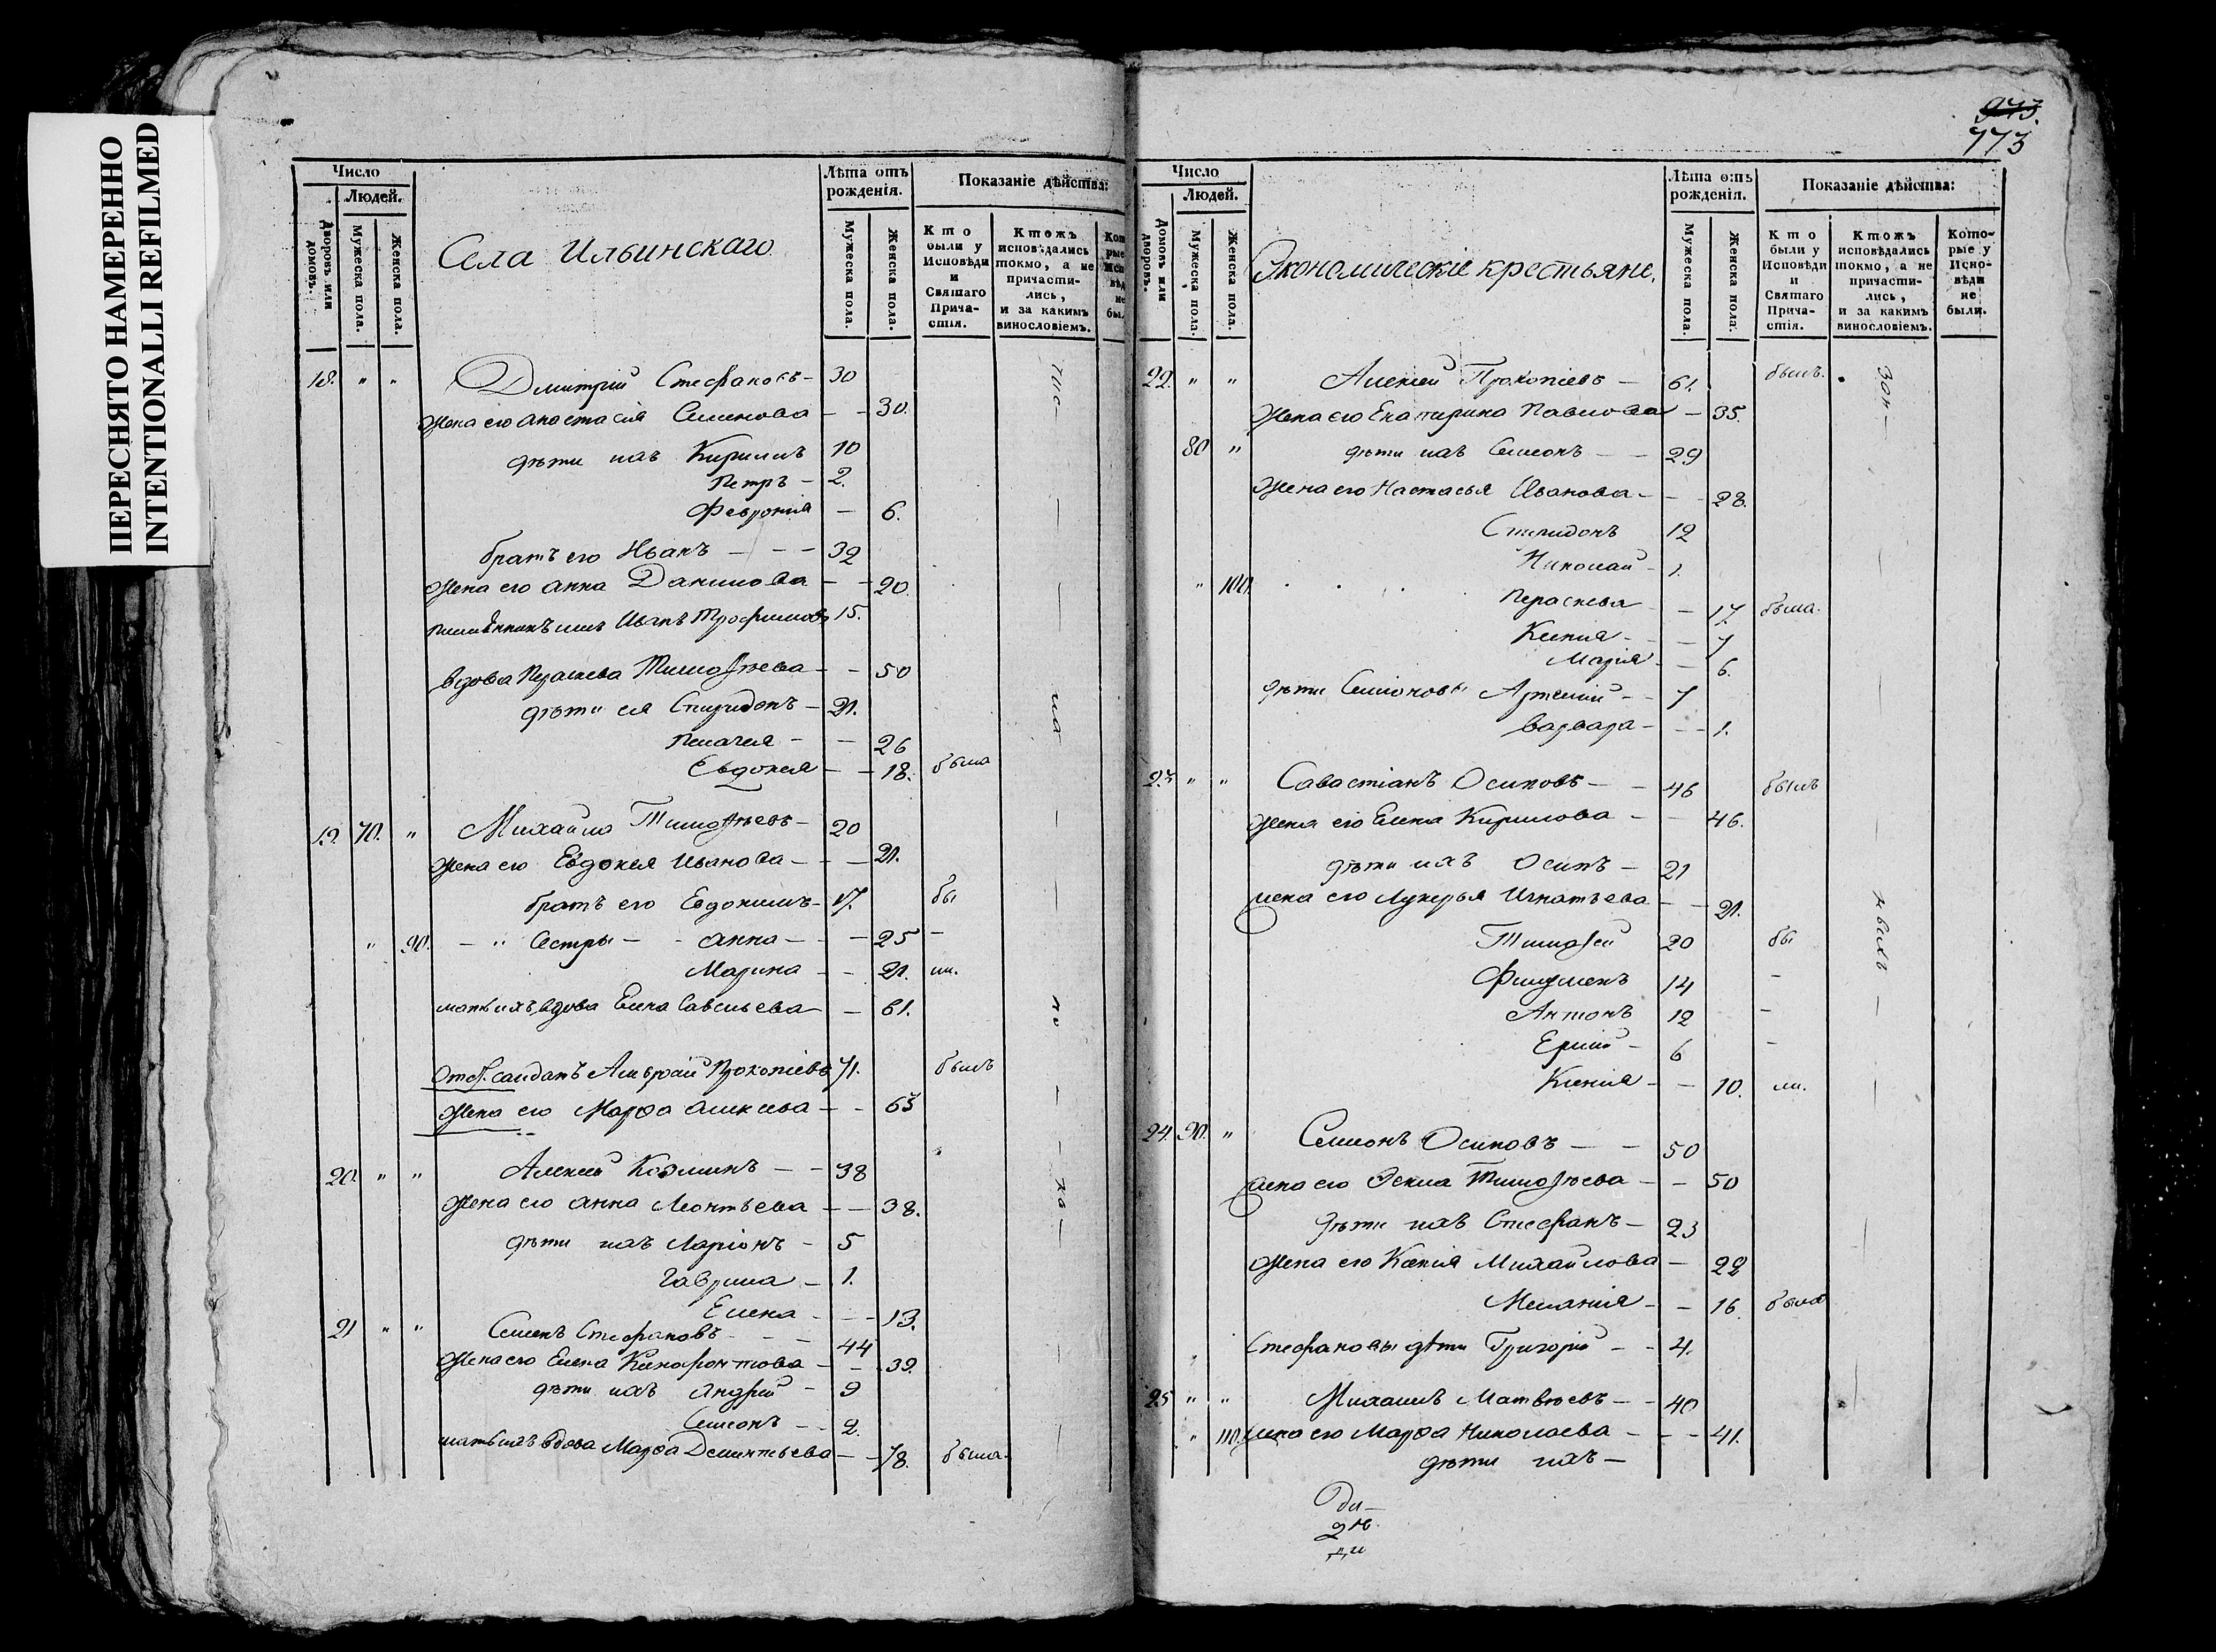 ПЕРЕСНЯТО НАМЕРЕННО
INTENTIONALLI REFILMED
Число
Людей.
Дворовъ или домовъ.
Мужеска пола.
Женска пола.
Села Ильинскаго
Лѣта отъ рожденія.
Мужеска пола.
Женска пола.
Показаніе дѣйства:
Кто были у Исповѣди и Святаго Причастія.
Ктожъ исповѣдались токмо, а не причастились, и за какимъ винословіемъ.
18. " " Дмитрій Стефановъ - 30
Жена его Анастасія Семенова - - 30.
дѣти ихъ Кирилъ 10
Петръ - 2.
Февронія - 6.
братъ его Иванъ - - - 32
Жена его Анна Данилова - - 20.
Иванъ Трофимовъ 15.
вдова Параскева Тимоѳѣева - - 50
дѣти ея Спиридонъ - 21.
Пелагея - - 26
Евдокея - - 18. была
19. 70. " Михайло Тимоѳѣевъ - 20
Жена его Евдокея Иванова - - - 21.
братъ его Евдокимъ - 17. бы
" 90. - " Сестры - - Анна - - - 25 -
Марина - - 21. ли.
мать ихъ вдова Елена Савельева - 61.
Отст. салдатъ Прокопіевъ 71. былъ
Жена его Марфа Алексева - - 63
20. " " Алексей Козминъ - - 38
Жена его Анна Леонтьева - - 38.
дѣти ихъ Ларіонъ - 5
Гаврила - 1.
Елена - - - 13.
21 " " Семенъ Стефановъ - - - 44
Жена его Елена Ксенофонтова - - - 39.
дѣти ихъ Андрей - 9
Симеонъ - - 2.
мать ихъ вдова Марфа Дементьева - - 78. была.
973.
773
Число
Людей.
Домовъ или дворовъ.
Мужеска пола.
Женска пола.
Экономическіе крестьяне.
Лѣта отъ рожденія.
Мужеска пола.
Женска пола.
Показаніе дѣйства:
Кто были у Исповѣди и Святаго Причастія.
Ктожъ исповѣдались токмо, а не причастились, и за какимъ винословіемъ.
Которые у Исповѣди не были.
22. " " Алексей Прокопіевъ - 61. былъ.
Жена его Екатерина Павлова - 35.
80 " дѣти ихъ Симеонъ - - 29
Жена его Настасья Иванова - - - 28.
Спиридонъ 12
Николай - 1.
" 100. Параскева - - 17. была.
Ксенія - - 7
Марія - - 6.
дѣти Симіоновы Артемій - - 7
Варвара - - - 1.
23. " " Савастіанъ Осиповъ - - 46 былъ
Жена его Елена Кирилова - - 46.
дѣти ихъ Осипъ - 21
жена его Лукерья Игнатьева - - 21.
Тимоѳей 20 бы
Филимонъ 14 -
Антонъ 12 -
6 -
Ксенія - - 10. ли.
24. 90. " Симеонъ Осиповъ - - 50
жена его Тимоѳѣева - - 50
дѣти ихъ Стефанъ - 23
Жена его Ксенія Михайлова - 22
Меланія - - 16. была
Стефановы дѣти Григорій - - 4.
25 " " Михаилъ Матвѣевъ - - 40
" 110 жена его Марфа Николаева - - - 41.
дѣти ихъ -